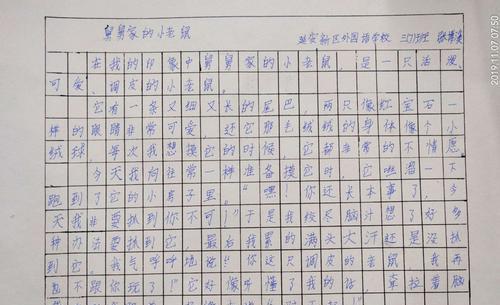 舅舅家的小老鼠
延安新区外国语学校 三(7)班
在我的印象中舅舅家的小老鼠,是一只活泼、
可爱、调皮的小老鼠。
它有一条又细又长的尾巴,两只像红宝石一
样的眼睛非常可爱,还它那毛绒绒的身体像个小
绒球,每次我想摸它的时候,它都非常的不情愿
今天我向往常一样准备摸它时,它嗖溜一下
跑到了它的小房子里。"嘿!你还长本事了,今
天我非要抓到你不可!"于是我绞尽脑汁想了好多
种办法要抓到它,最后我累的满头大汗还是没抓
到它,我气呼呼地说"你这只调皮的老鼠,我再
也不跟你玩了!"它好像听懂了我的话,牵拉着脑
2019.11.07 07:50